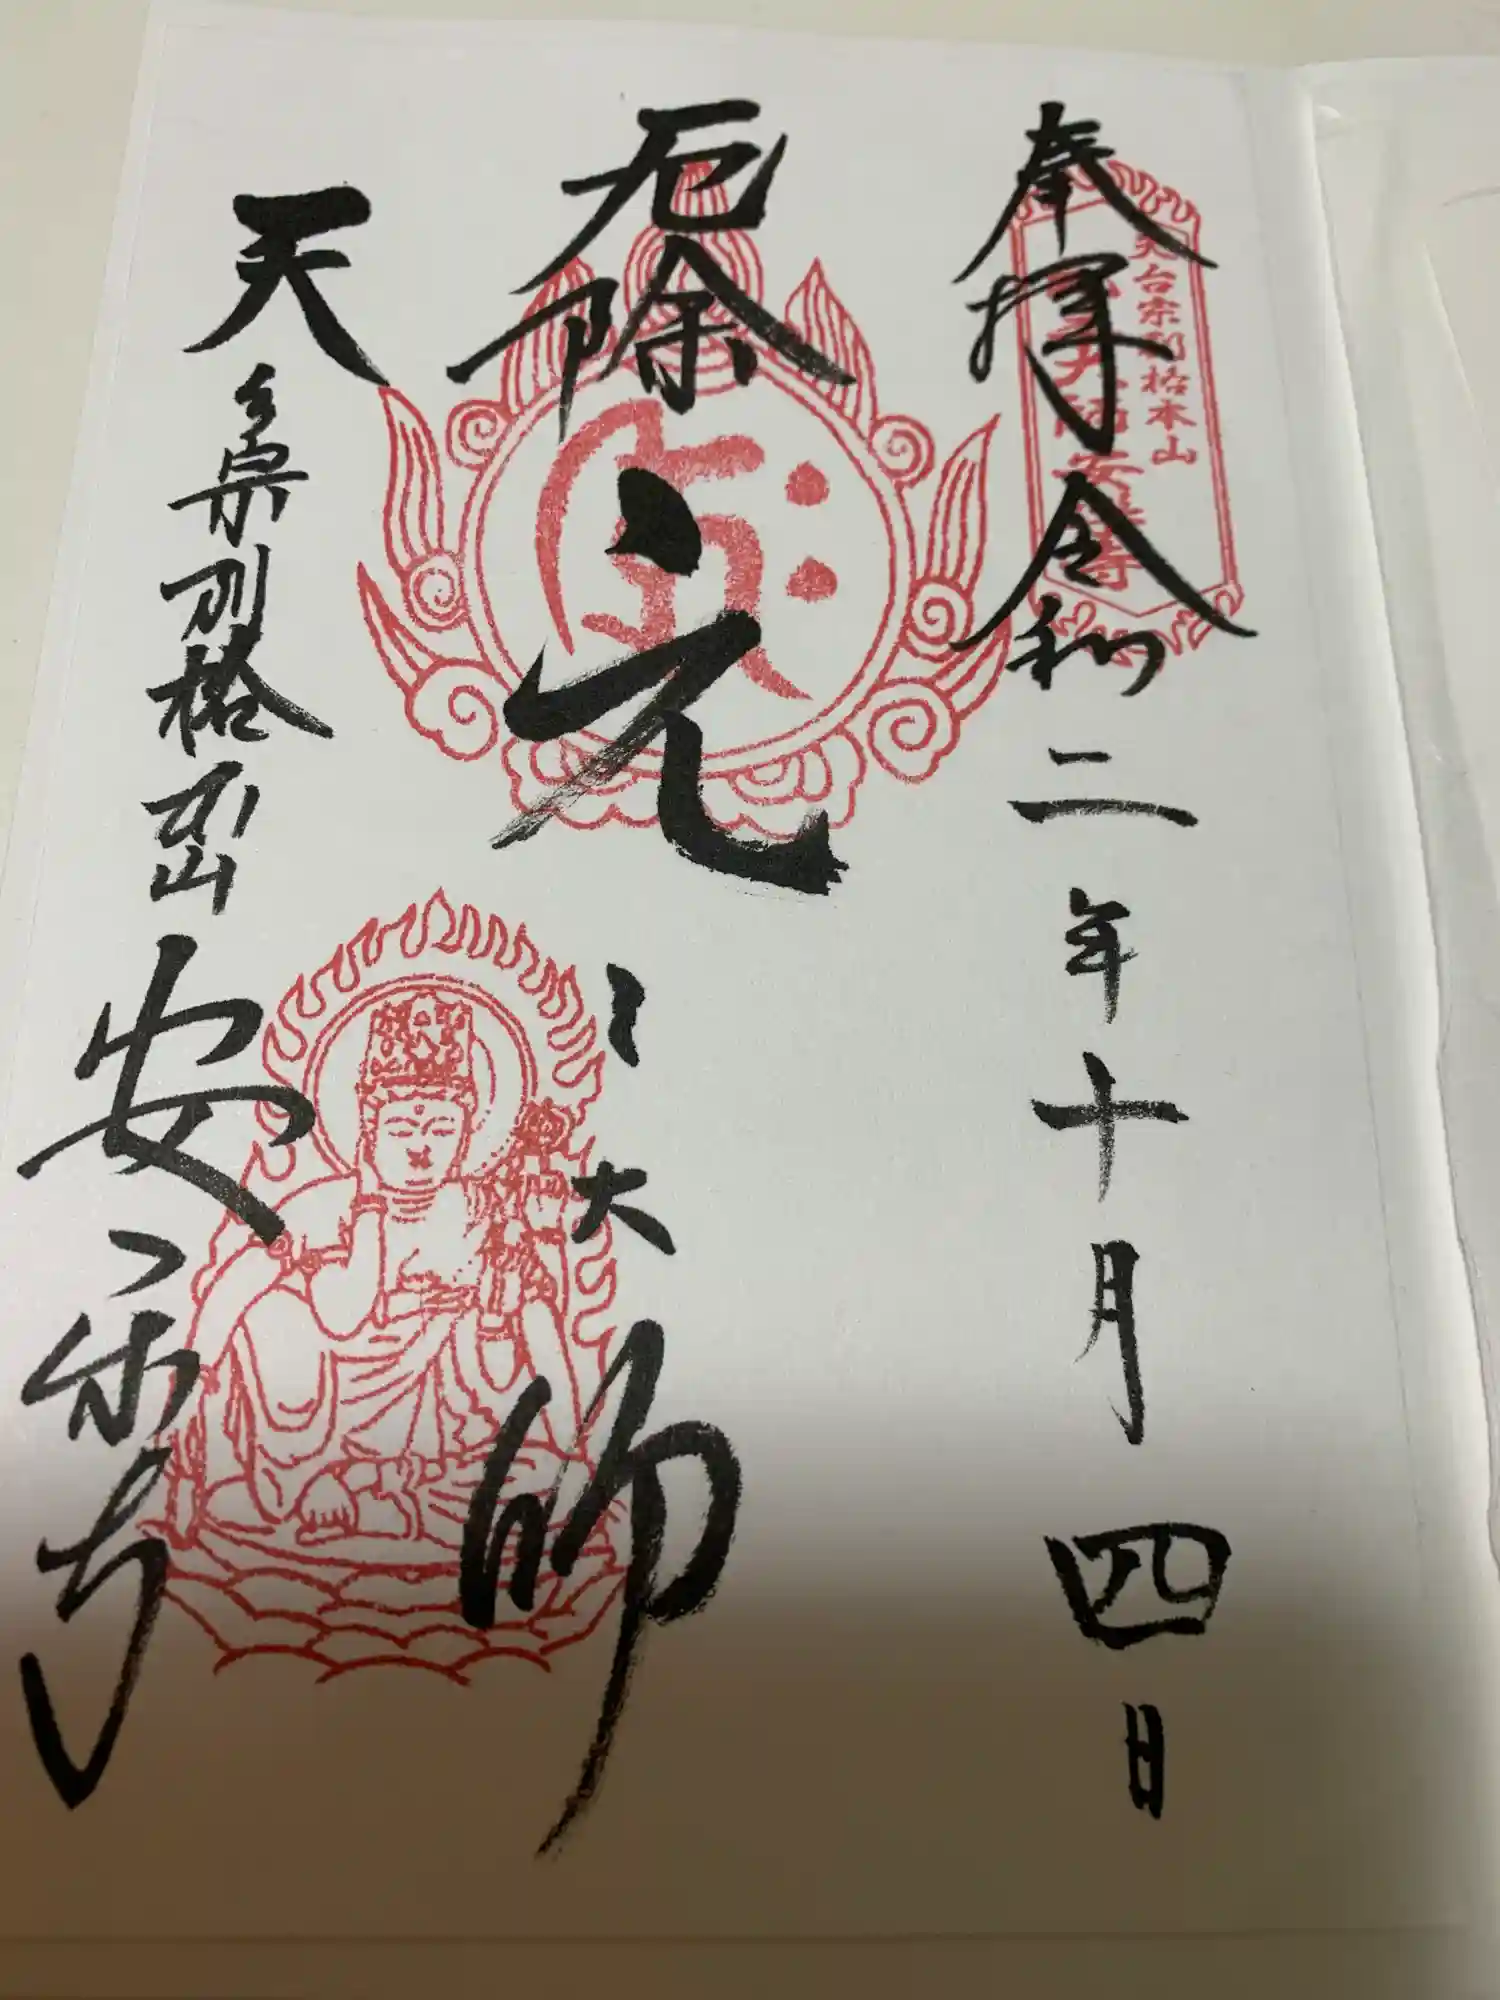 奉拝 令和二年十月四日
天台宗別格本山
元三大師 安楽寺
厄除 元三大師
天台宗別格本山 安楽寺